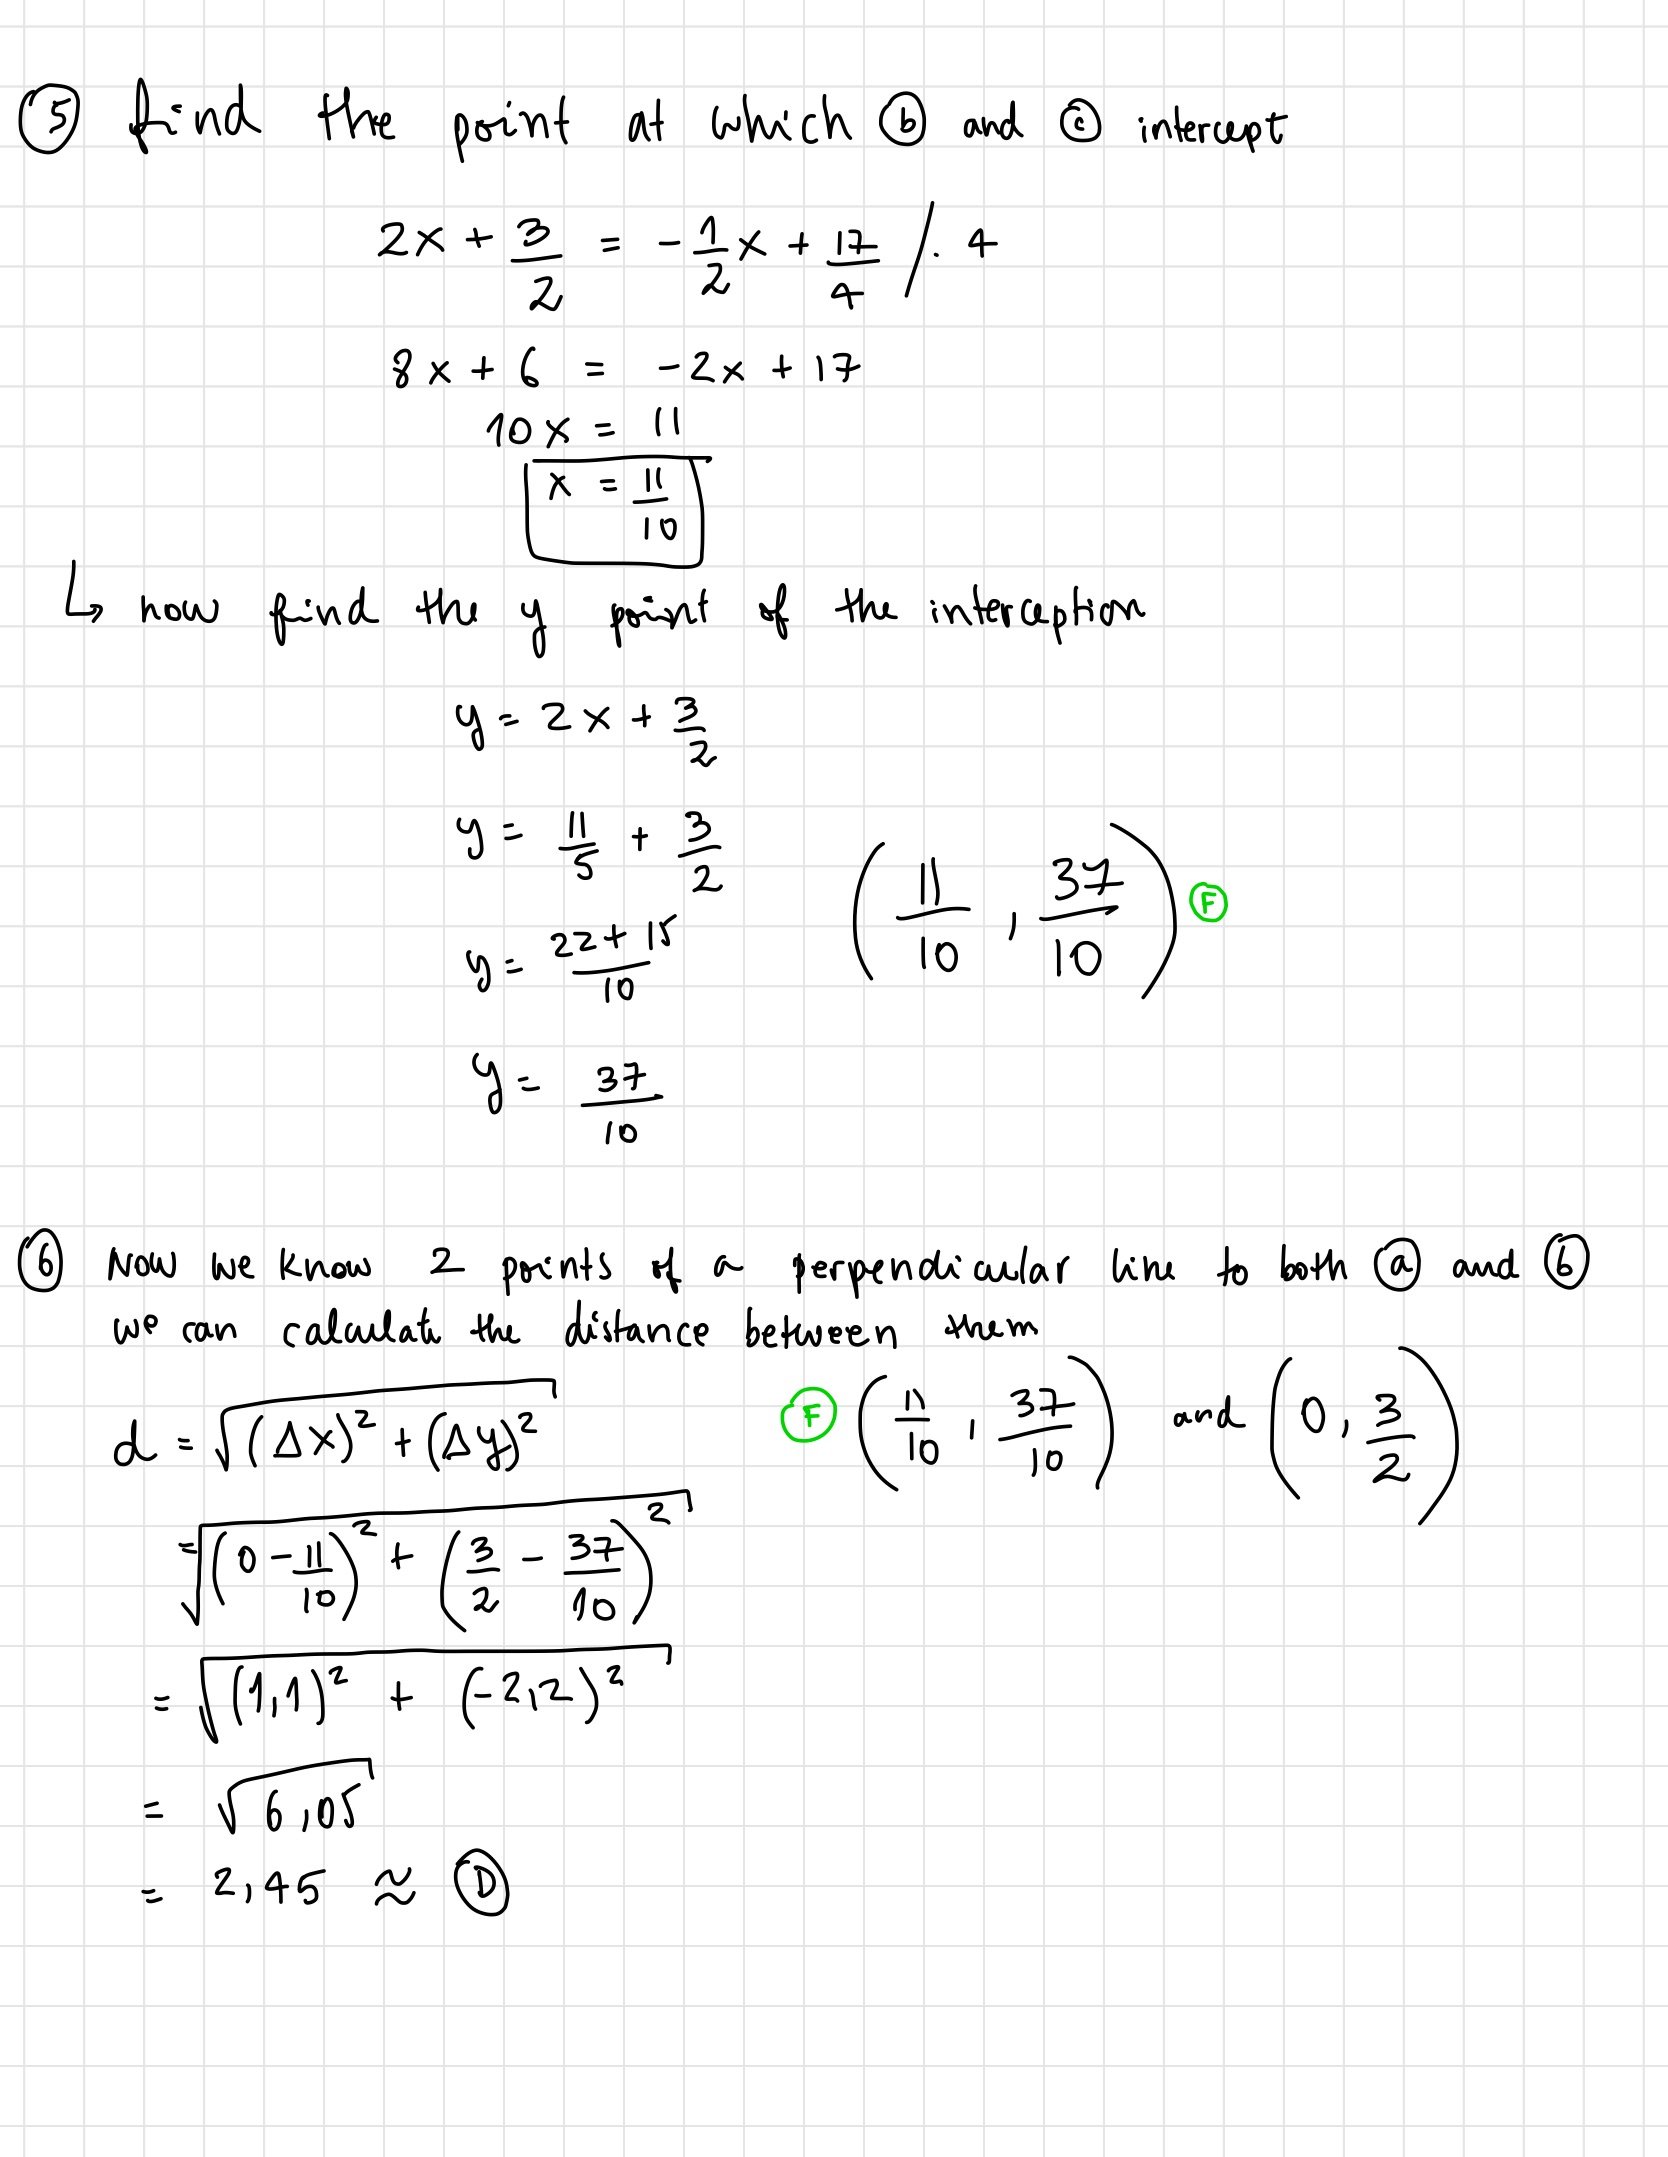 ⑤ find the point at which ⓑ and ⓒ intercept
2x + 3/2 = -1/2 x + 17/4 /. 4
8x + 6 = -2x + 17
10x = 11
x = 11/10
↳ now find the y point of the interception
y = 2x + 3/2
y = 11/5 + 3/2
y = (22+15)/10
(11/10, 37/10) Ⓕ
y = 37/10
⑥ Now we know 2 points of a perpendicular line to both ⓐ and ⓑ
we can calculate the distance between them
d = √((Δx)² + (Δy)²)
Ⓕ (11/10, 37/10) and (0, 3/2)
= √((0 - 11/10)² + (3/2 - 37/10)²)
= √((1,1)² + (-2,2)²)
= √6,05
= 2,45 ≈ Ⓓ